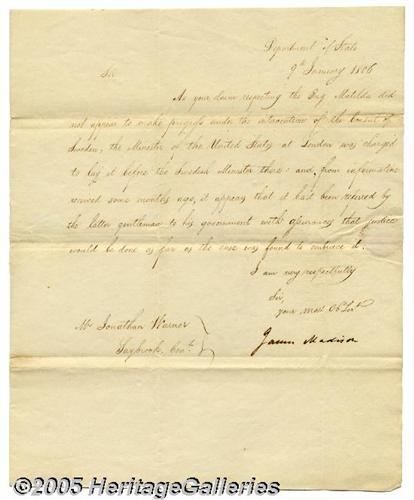 Department of State
9th January 1806
Sir
As your claim respecting the Brig Matilda did
not appear to make progress under the intervention of the Consul of
Sweden, the Minister of the United States at London was charged
to lay it before the Swedish Minister there: and from information
received some months ago, it appears that it had been referred by
the latter gentleman to his government with assurances that justice
would be done as far as the case was found to embrace it.
I am very respectfully
Sir,
your most Ob Servt
James Madison
Mr Jonathan Warner
Saybrook, Cont.
©2005 HeritageGalleries